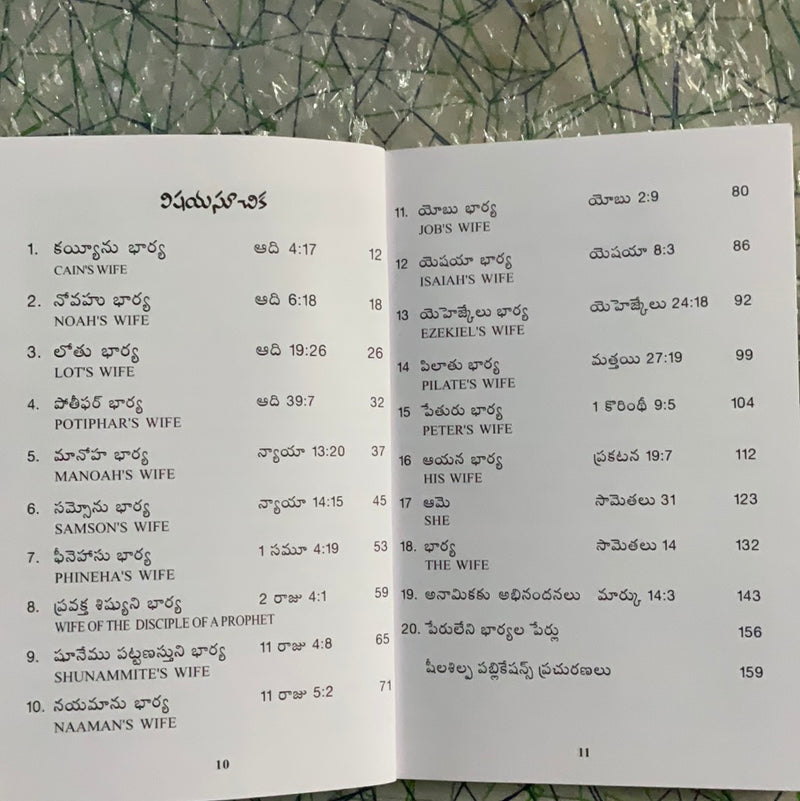 విషయసూచిక
1. కయ్యీను భార్య ఆది 4:17 12
CAIN'S WIFE
2. నోవహు భార్య ఆది 6:18 18
NOAH'S WIFE
3. లోతు భార్య ఆది 19:26 26
LOT'S WIFE
4. పోతీఫర్ భార్య ఆది 39:7 32
POTIPHAR'S WIFE
5. మానోహ భార్య న్యాయా 13:20 37
MANOAH'S WIFE
6. సమ్సోను భార్య న్యాయా 14:15 45
SAMSON'S WIFE
7. ఫీనెహాసు భార్య 1 సమూ 4:19 53
PHINEHA'S WIFE
8. ప్రవక్త శిష్యుని భార్య 2 రాజు 4:1 59
WIFE OF THE DISCIPLE OF A PROPHET
9. షూనేము పట్టణస్తుని భార్య 11 రాజు 4:8 65
SHUNAMMITE'S WIFE
10. నయమాను భార్య 11 రాజు 5:2 71
NAAMAN'S WIFE
10
11. యోబు భార్య యోబు 2:9 80
JOB'S WIFE
12 యెషయా భార్య యెషయా 8:3 86
ISAIAH'S WIFE
13 యెహెజ్కేలు భార్య యెహెజ్కేలు 24:18 92
EZEKIEL'S WIFE
14 పిలాతు భార్య మత్తయి 27:19 99
PILATE'S WIFE
15 పేతురు భార్య 1 కొరింథీ 9:5 104
PETER'S WIFE
16 ఆయన భార్య ప్రకటన 19:7 112
HIS WIFE
17 ఆమె సామెతలు 31 123
SHE
18. భార్య సామెతలు 14 132
THE WIFE
19. అనామికకు అభినందనలు మార్కు 14:3 143
20. పేరులేని భార్యల పేర్లు 156
షీలశిల్ప పబ్లికేషన్స్ ప్రచురణలు 159
11